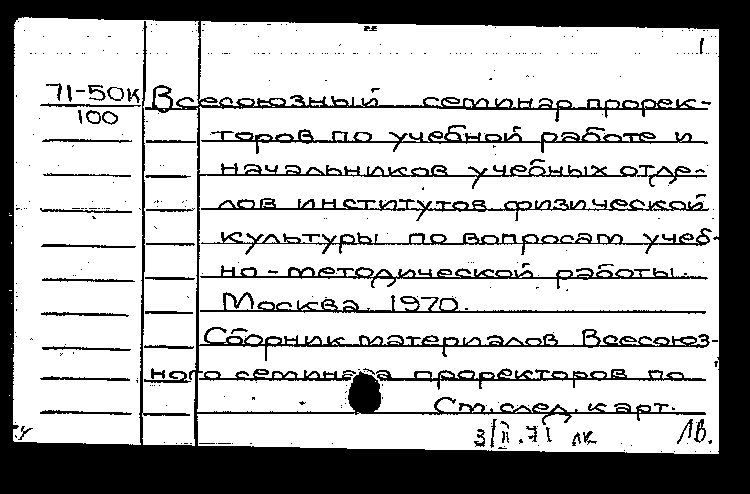 1
71-50к Всесоюзный семинар прорек-
100
торов по учебной работе и
начальников учебных отде-
лов институтов физической
культуры по вопросам учеб-
но-методической работы.
Москва. 1970.
Сборник материалов Всесоюз-
ного семинара проректоров по
См. след. карт.
3/II.71 лк ЛВ.